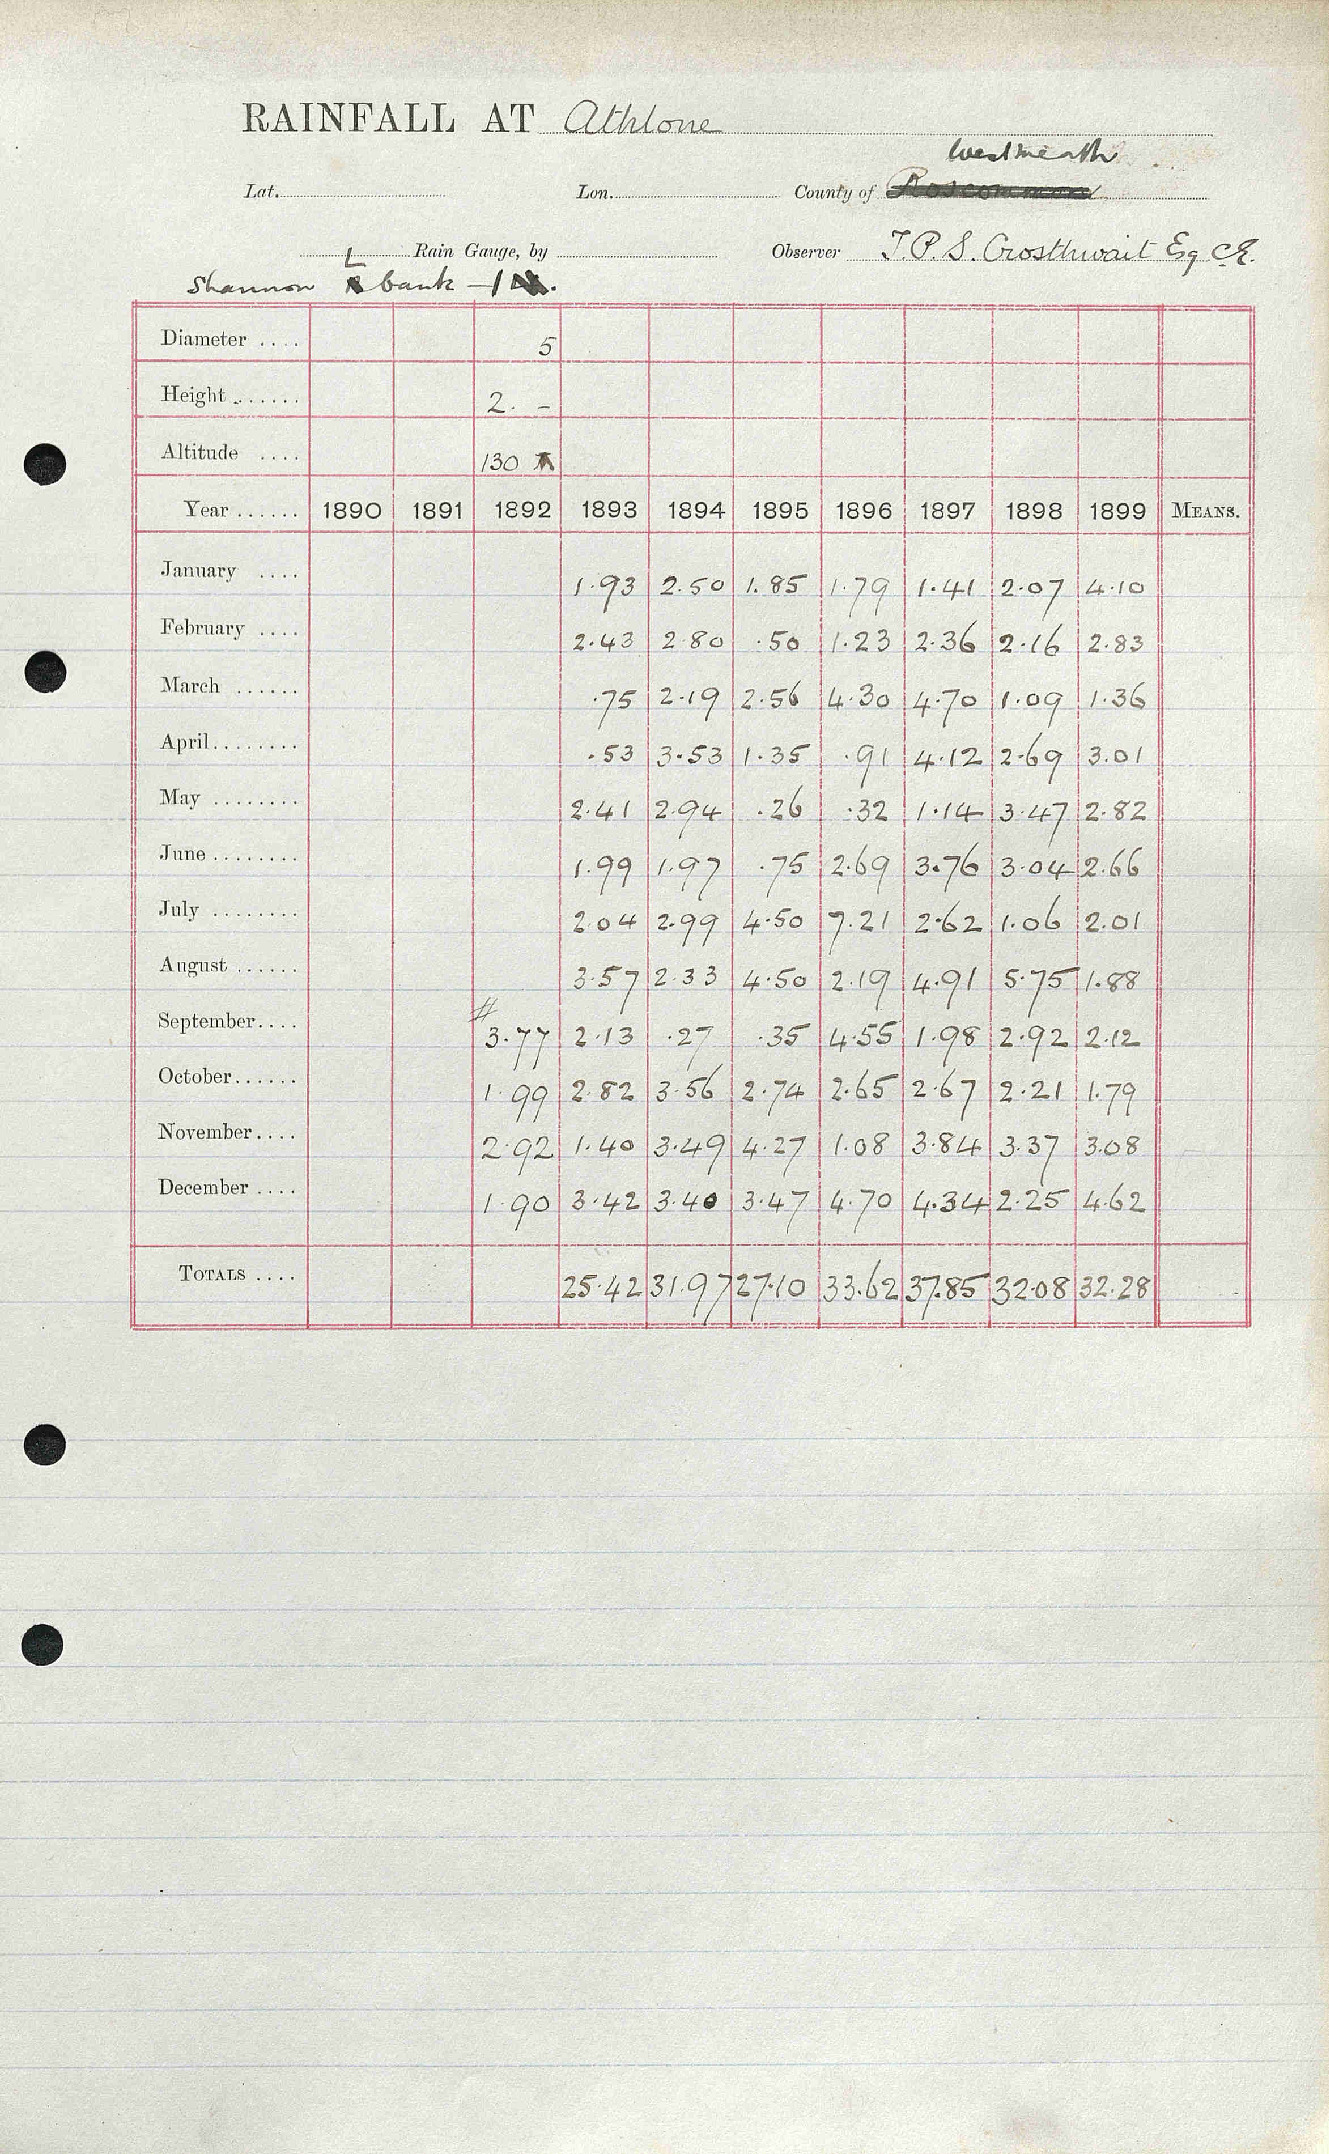 RAINFALL AT Athlone
Westmeath
Lat. Lon. County of Roscommon
L Rain Gauge, by Observer T. P. S. Crosthwait Esq C.E.
Shannon bank - 1
Diameter .... 5
Height ...... 2. -
Altitude .... 130
Year ...... 1890 1891 1892 1893 1894 1895 1896 1897 1898 1899 MEANS.
January .... 1.93 2.50 1.85 1.79 1.41 2.07 4.10
February .... 2.43 2.80 .50 1.23 2.36 2.16 2.83
March ...... .75 2.19 2.56 4.30 4.70 1.09 1.36
April........ .53 3.53 1.35 .91 4.12 2.69 3.01
May ........ 2.41 2.94 .26 .32 1.14 3.47 2.82
June ........ 1.99 1.97 .75 2.69 3.76 3.04 2.66
July ........ 2.04 2.99 4.50 7.21 2.62 1.06 2.01
August ...... 3.57 2.33 4.50 2.19 4.91 5.75 1.88
#
September.... 3.77 2.13 .27 .35 4.55 1.98 2.92 2.12
October...... 1.99 2.82 3.56 2.74 2.65 2.67 2.21 1.79
November.... 2.92 1.40 3.49 4.27 1.08 3.84 3.37 3.08
December .... 1.90 3.42 3.40 3.47 4.70 4.34 2.25 4.62
TOTALS .... 25.42 31.97 27.10 33.62 37.85 32.08 32.28